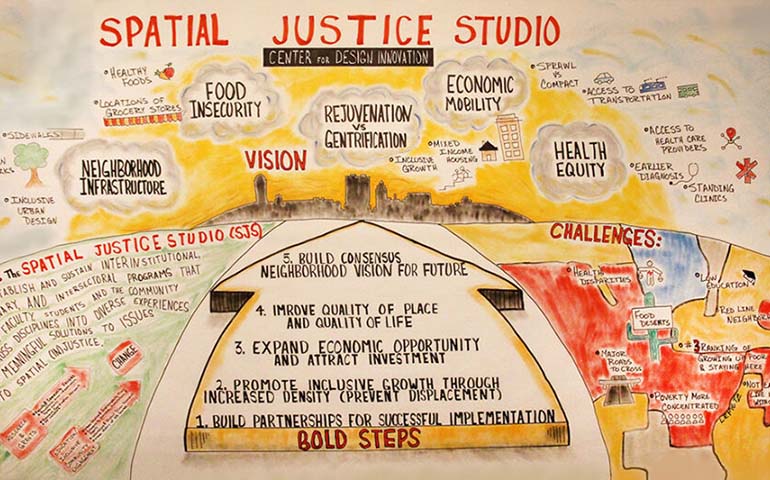 SPATIAL JUSTICE STUDIO
CENTER FOR DESIGN INNOVATION
HEALTHY
FOODS
LOCATIONS OF
GROCERY STORES
SIDEWALKS
INCLUSIVE
URBAN
DESIGN
FOOD
INSECURITY
NEIGHBORHOOD
INFRASTRUCTURE
VISION
REJUVENATION
VS
GENTRIFICATION
INCLUSIVE
GROWTH
MIXED
INCOME
HOUSING
ECONOMIC
MOBILITY
SPRAWL
VS
COMPACT
ACCESS TO
TRANSPORTATION
HEALTH
EQUITY
ACCESS TO
HEALTH CARE
PROVIDERS
EARLIER
DIAGNOSIS
STANDING
CLINICS
THE SPATIAL JUSTICE STUDIO (SJS)
ABLISH AND SUSTAIN INTERINSTITUTIONAL,
ARY AND INTERSECTORAL PROGRAMS THAT
FACULTY, STUDENTS AND THE COMMUNITY
SS DISCIPLINES INTO DIVERSE EXPERIENCES
MEANINGFUL SOLUTIONS TO ISSUES
TO SPATIAL (IN)JUSTICE.
CHANGE
5. BUILD CONSENSUS
NEIGHBORHOOD VISION FOR FUTURE
4. IMROVE QUALITY OF PLACE
AND QUALITY OF LIFE
3. EXPAND ECONOMIC OPPORTUNITY
AND ATTRACT INVESTMENT
2. PROMOTE INCLUSIVE GROWTH THROUGH
INCREASED DENSITY (PREVENT DISPLACEMENT)
1. BUILD PARTNERSHIPS FOR SUCCESSFUL IMPLEMENTATION
BOLD STEPS
CHALLENGES:
HEALTH
DISPARITIES
LOW
EDUCATION
RED LINE
NEIGHBOR
FOOD
DESERTS
#3 RANKING OF
GROWING UP POOR
& STAYING HERE
MAJOR
ROADS
TO CROSS
POVERTY MORE
CONCENTRATED